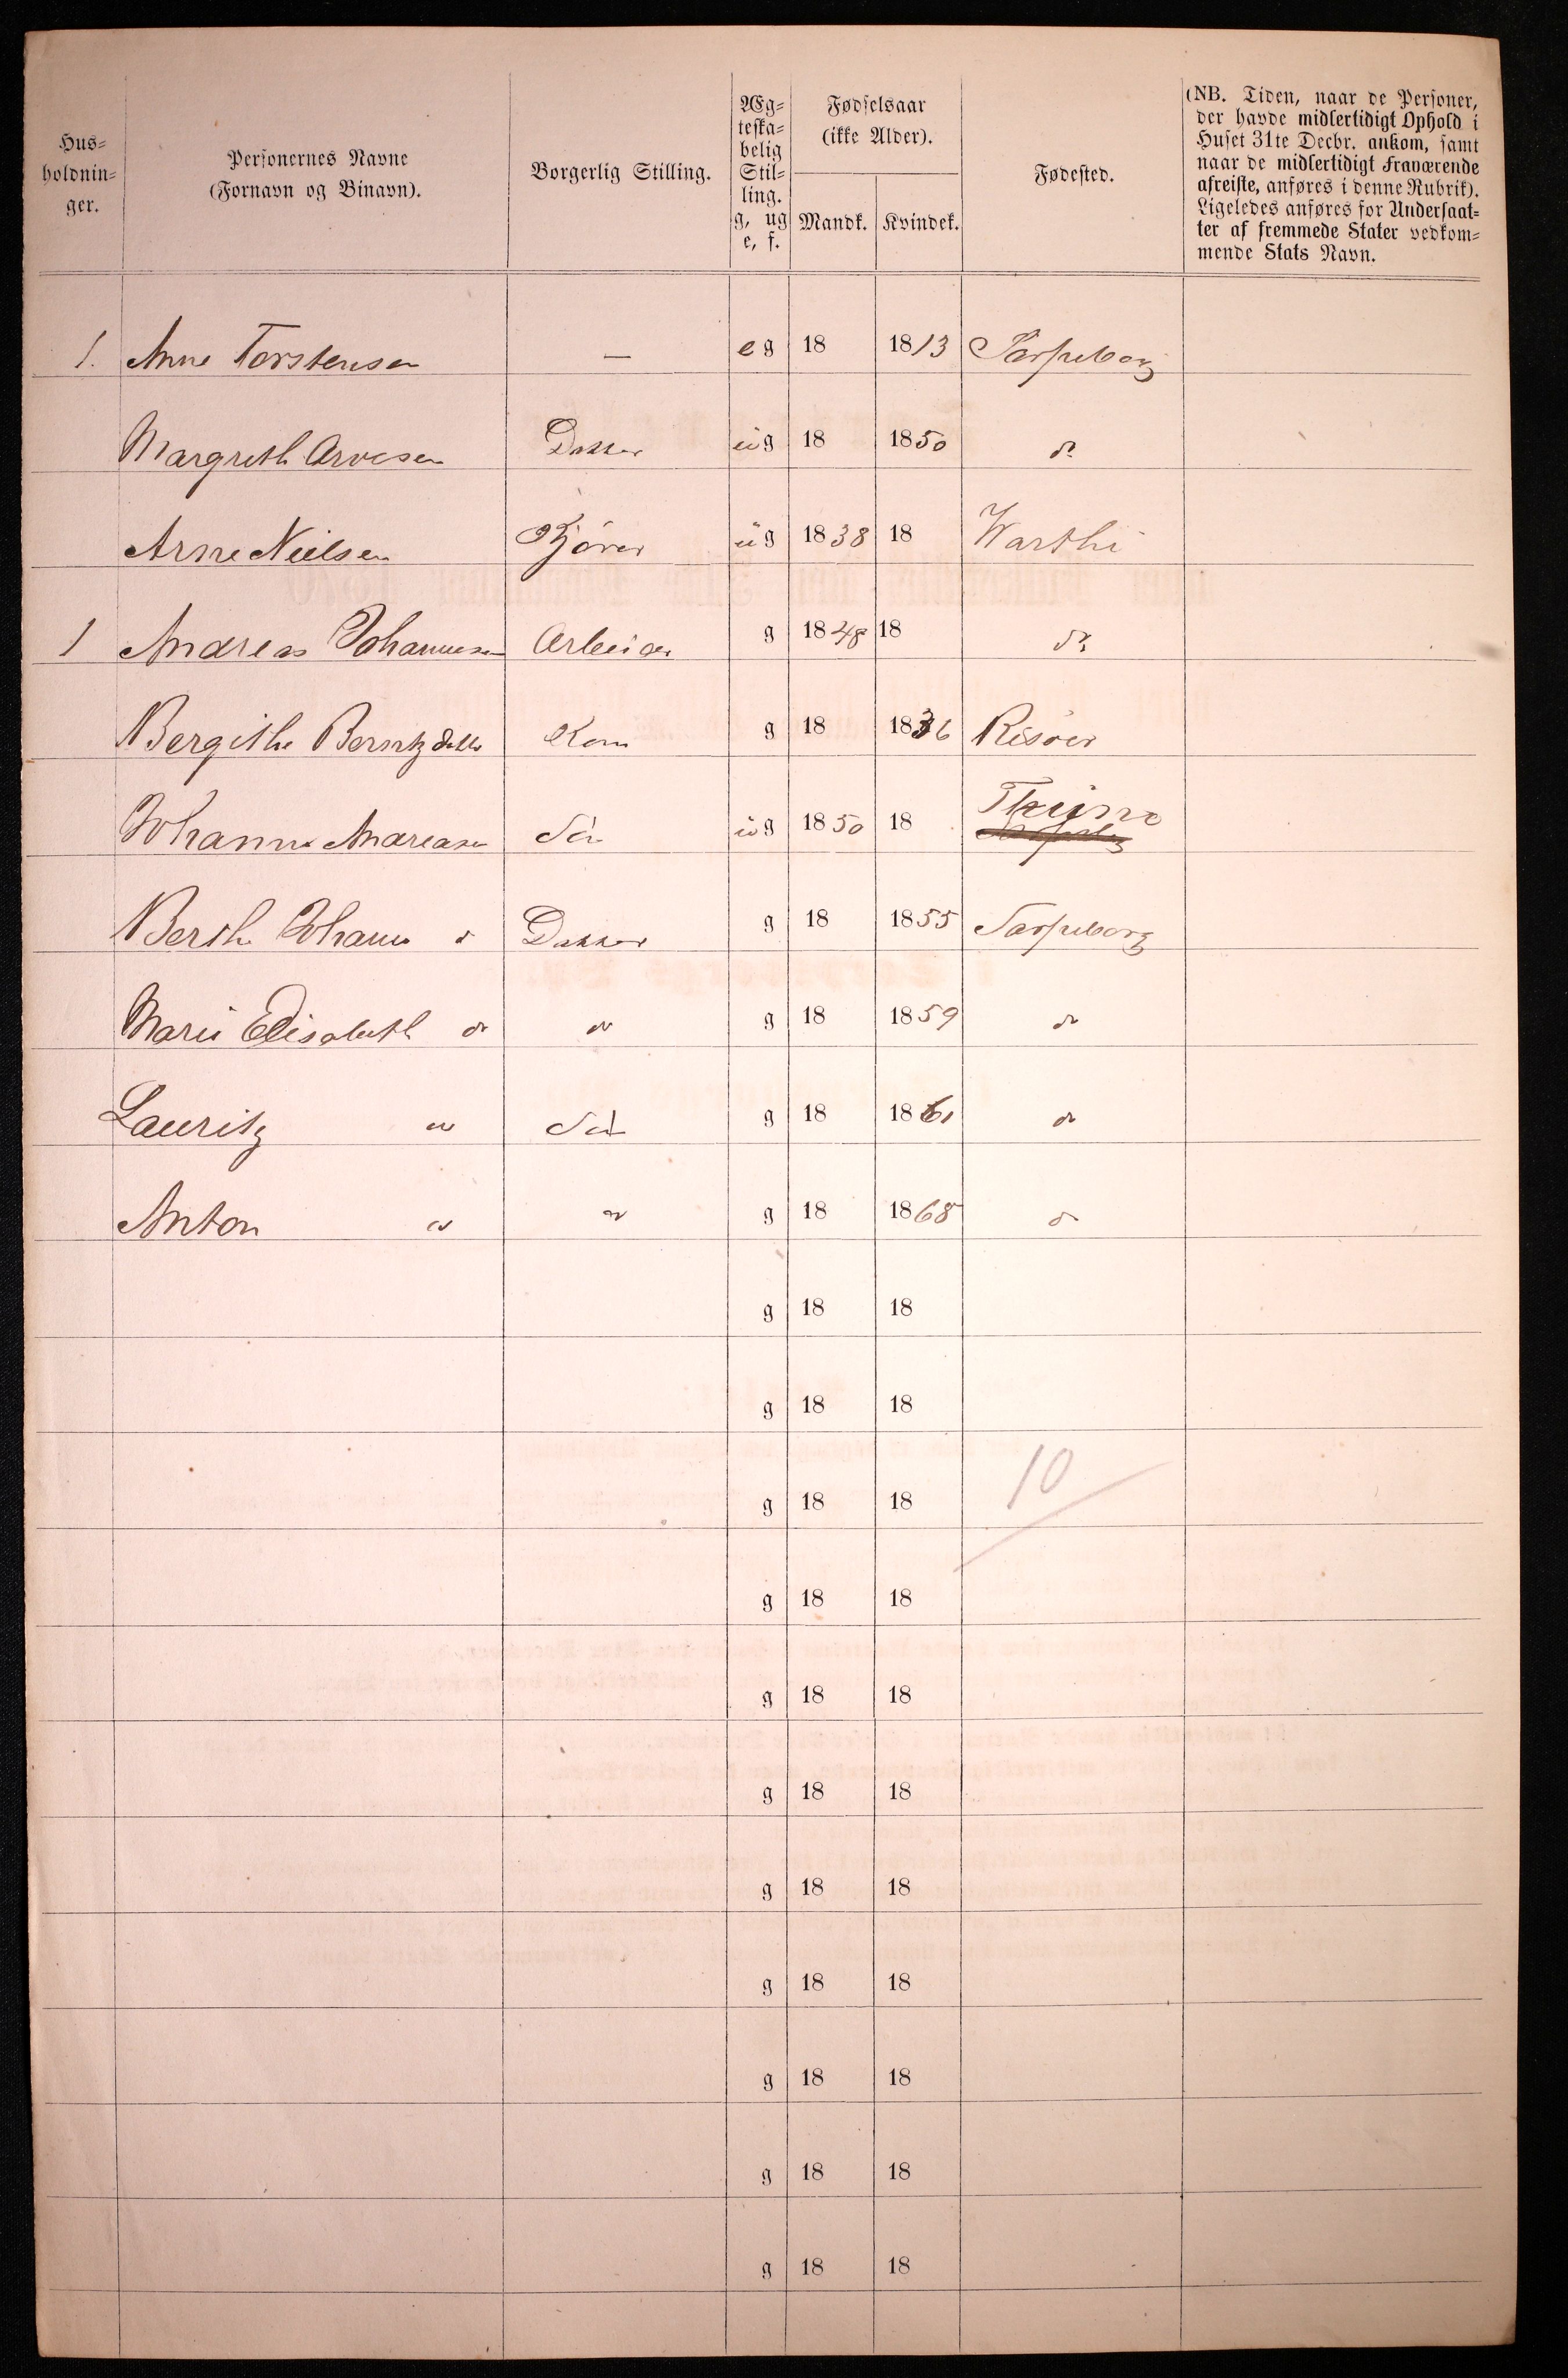 Hus=
holdnin=
ger.
Personernes Navne
(Fornavn og Binavn).
Borgerlig Stilling.
Æg=
teska=
belig
Stil=
ling.
g, ug
e, f.
Fødselsaar
(ikke Alder).
Mandk. Kvindek.
Fødested.
(NB. Tiden, naar de Personer,
der havde midlertidigt Ophold i
Huset 31te Decbr. ankom, samt
naar de midlertidigt Fraværende
afreiste, anføres i denne Rubrik).
Ligeledes anføres for Undersaat=
ter af fremmede Stater vedkom=
mende Stats Navn.
1. Anne Torstensen — e g 18 1813 Sarpsborg
Margreth Arvesen Datter ug 18 1850 do
Arne Nielsen Kjører ug 1838 18 Warthi
1 Andreas Johannesen Arbeider g 1848 18 do
Bergithe Berntzdatter Kone g 18 1836 Risøer
Johannes Andreasen Søn ug 1850 18 Thuno
Berthe Johanne d Datter g 18 1855 Sarpsborg
Marie Elisabeth do do g 18 1859 do
Lauritz do Søn g 18 1861 do
Anton do do g 18 1868 do
g 18 18
g 18 18
g 18 18 10
g 18 18
g 18 18
g 18 18
g 18 18
g 18 18
g 18 18
g 18 18
g 18 18